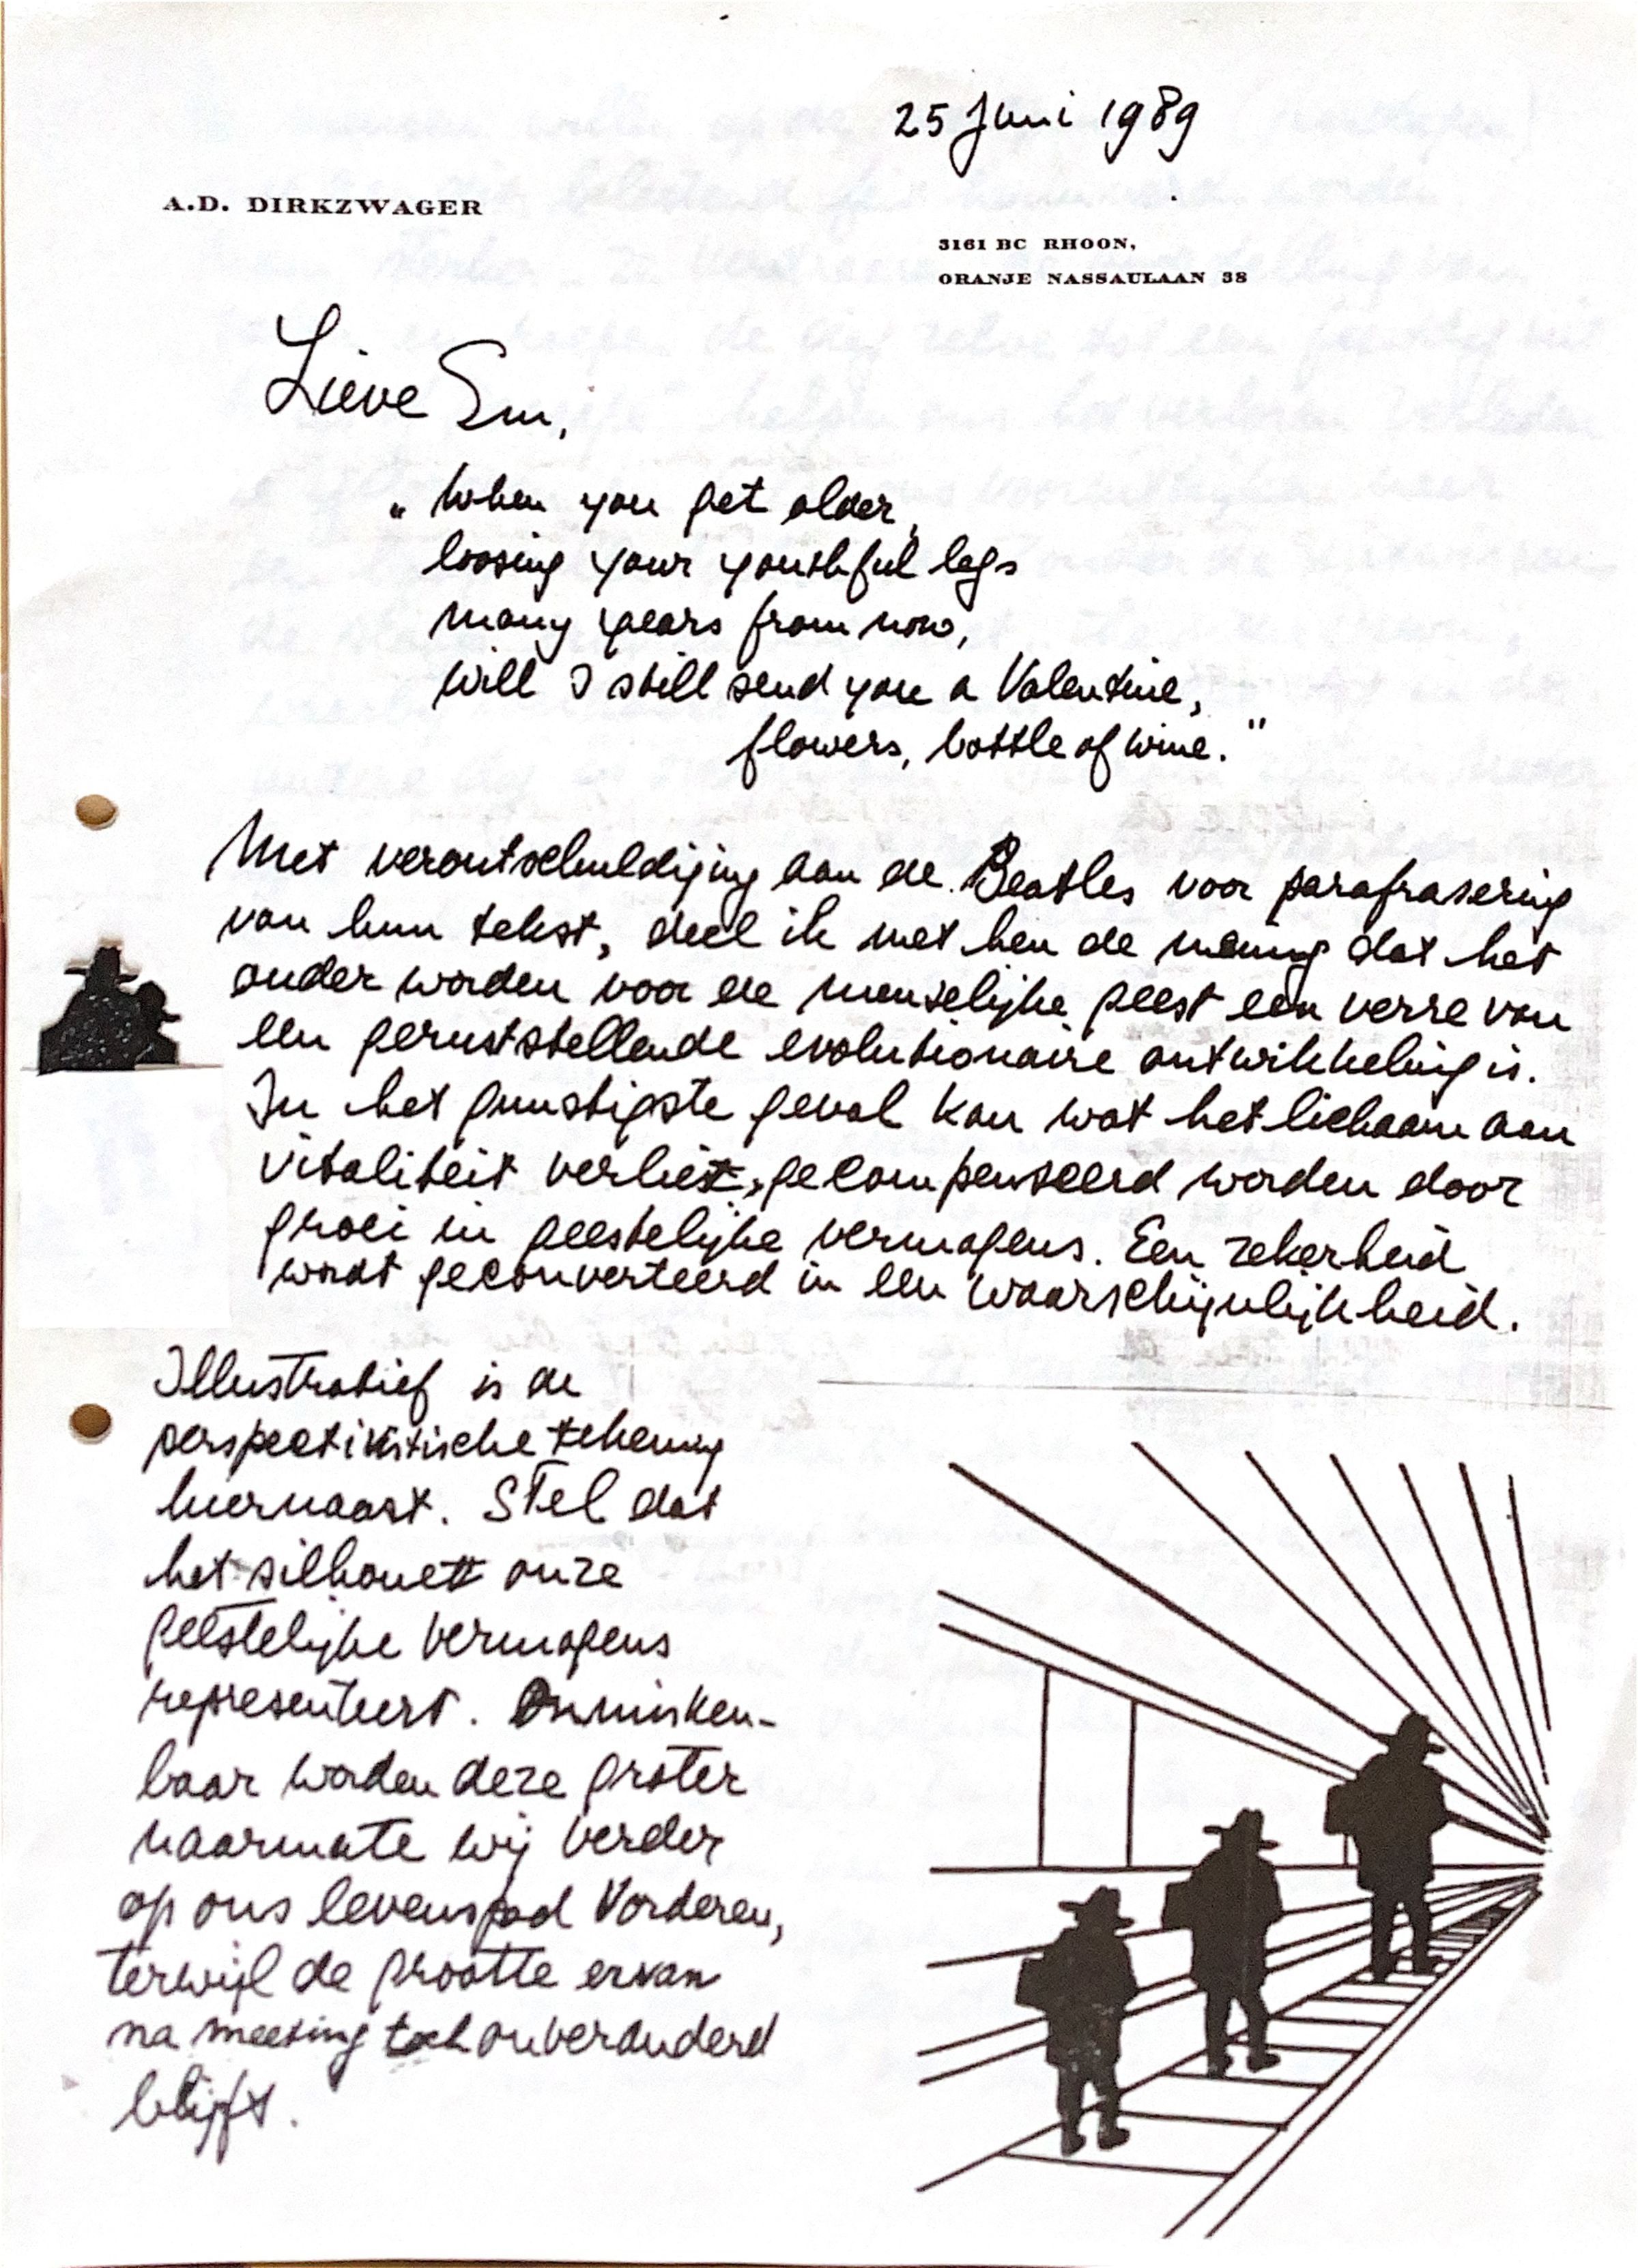 25 Juni 1989
A.D. DIRKZWAGER
3161 BC RHOON,
ORANJE NASSAULAAN 38
Lieve Em,
„ When you get older,
loosing your youthful legs
many years from now,
will I still send you a Valentine,
flowers, bottle of wine."
Met verontschuldiging aan de Beatles voor parafrasering
van hun tekst, deel ik met hen de mening dat het
ouder worden voor de menselijke geest een verre van
een geruststellende evolutionaire ontwikkeling is.
In het gunstigste geval kan wat het lichaam aan
vitaliteit verliest, gecompenseerd worden door
groei in geestelijke vermogens. Een zekerheid
wordt geconverteerd in een waarschijnlijkheid.
Illustratief is de
perspectivistische tekening
hiernaast. Stel dat
het silhouett onze
geestelijke vermogens
representeert. Onmisken-
baar worden deze groter
naarmate wij verder
op ons levenspad vorderen,
terwijl de grootte ervan
na meeting toch onveranderd
blijft.